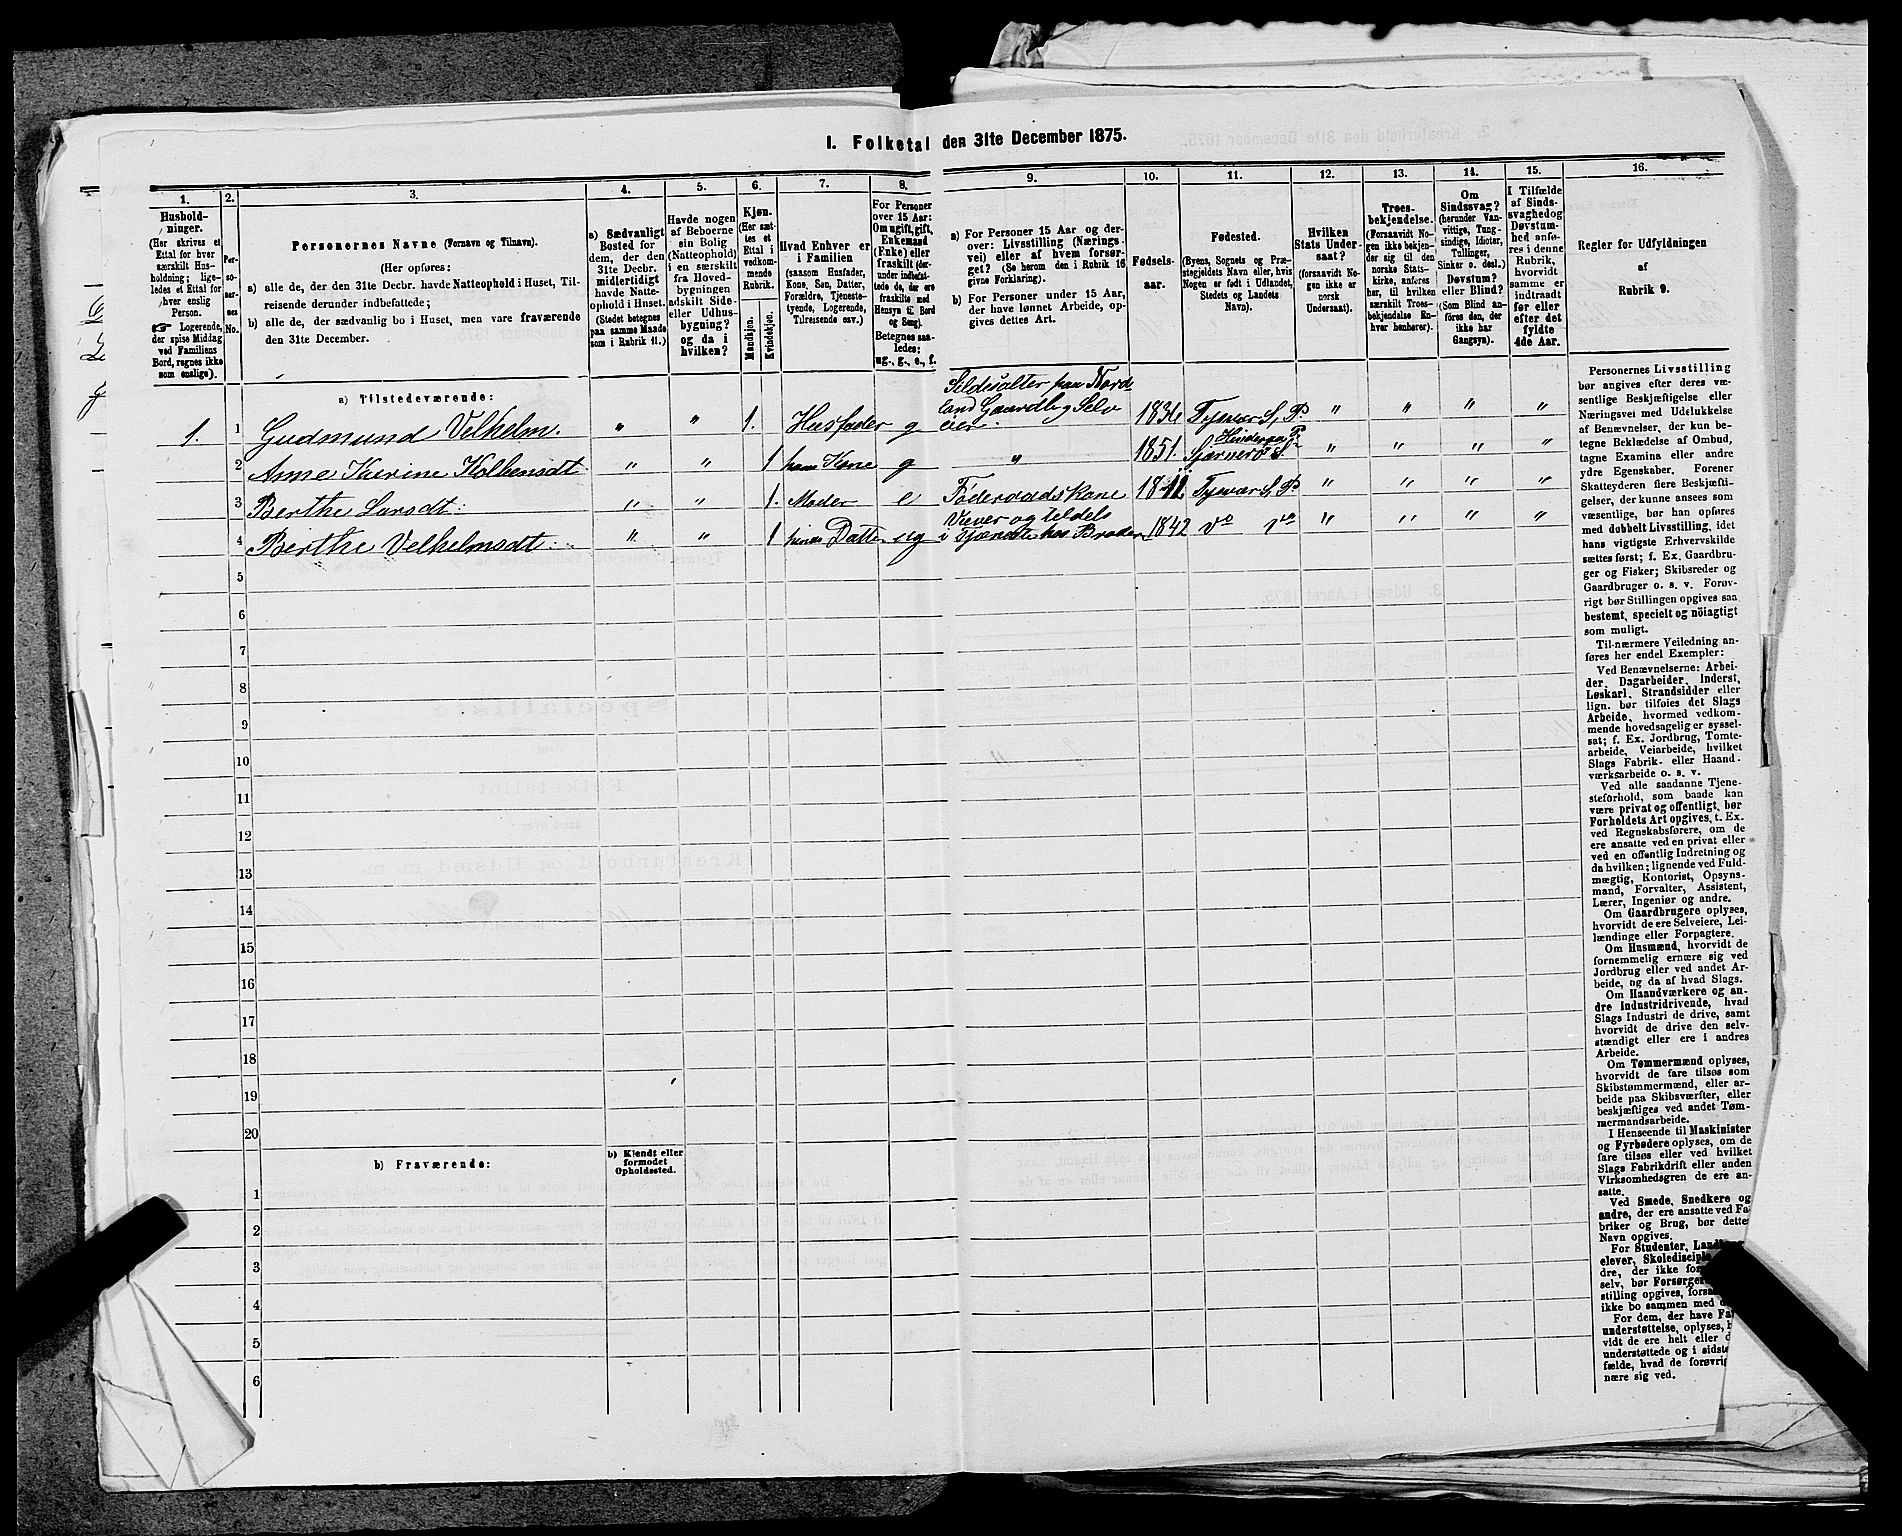 I. Folketal den 31te December 1875.
1.
2.
3.
4.
5.
6.
7.
8.
9.
10.
11.
12.
13.
14.
15.
16.
Hushold-
ninger.
(Her skrives et
Ettal for hver
særskilt Hus-
holdning; lige-
ledes et Ettal for
hver enslig
Person.
☞ Logerende,
der spise Middag
ved Familiens
Bord, regnes ikke
som enslige).
Per-
so-
ner-
nes
No.
Personernes Navne (Fornavn og Tilnavn).
(Her opføres:
a) alle de, der den 31te Decbr. havde Natteophold i Huset, Til-
reisende derunder indbefattede;
b) alle de, der sædvanlig bo i Huset, men vare fraværende
den 31te December.
a) Sædvanligt
Bosted for
dem, der den
31te Decbr.
midlertidigt
havde Natte-
ophold i Huset.
(Stedet betegnes
paa samme Maade
som i Rubrik 11.)
Havde nogen
af Beboerne
sin Bolig
(Natteophold)
i en særskilt
fra Hoved-
bygningen
adskilt Side-
eller Udhus-
bygning? og
da i
hvilken?
Kjøn.
(Her sæt-
tes et
Ettal i
vedkom-
mende
Rubrik.
Mandkjøn.
Kvindekjøn.
Hvad Enhver er
i Familien
(saasom Husfader,
Kone, Søn, Datter,
Forældre, Tjeneste-
tyende, Logerende,
Tilreisende osv.)
For Personer
over 15 Aar:
Om ugift, gift,
Enkemand
(Enke) eller
fraskilt (der-
under indbefat-
tede de, der ere
fraskilte med
Hensyn til Bord
og Seng).
Betegnes saa-
ledes:
ug., g., e., f.
a) For Personer 15 Aar og der-
over: Livsstilling (Nærings-
vei) eller af hvem forsør-
get? (Se herom den i Rubrik 16
givne Forklaring).
b) For Personer under 15 Aar,
der have lønnet Arbeide, op-
gives dettes Art.
Fødsels-
aar.
Fødested.
(Byens, Sognets og Præ-
stegjeldets Navn eller, hvis
Nogen er født i Udlandet,
Stedets og Landets
Navn).
Hvilken
Stats Under-
saat?
(forsaavidt No-
gen ikke er
norsk
Undersaat).
Troes-
bekjendelse.
(Forsaavidt No-
gen ikke bekjen-
der sig til den
norske Stats-
kirke, anføres
her, til hvilken
særskilt Troes-
bekjendelse En-
hver henhører).
Om
Sindssvag?
(herunder Van-
vittige, Tung-
sindige, Idioter,
Tullinger,
Sinker o. desl.)
Døvstum?
eller Blind?
(Som Blind an-
føres den, der
ikke har
Gangsyn).
I Tilfælde
af Sinds-
svaghed og
Døvstum-
hed anfø-
res i denne
Rubrik,
hvorvidt
samme er
indtraadt
før eller
efter det
fyldte
4de Aar.
Regler for Udfyldningen
af
Rubrik 9.
a) Tilstedeværende:
1. 1 Gudmund Velhelm. " " 1. Husfader g Sildesalter paa Nord-
land Gaardb og Selv
eier. 1836 Tysvær S, P. " " " "
2 Anne Karine Kolbensdt " " 1 hans Kone g " 1851. Hinderaa P.
Sjærnerø S " " " "
3 Berthe Larsdt. " " 1. Moder e Føderaadskone 1812 Tysvær S, P. " " " "
4 Berthe Velhelmsdt. " " 1 hendes Datter ug Væver og tildels
i Tjeneste hos Broder. 1842 do do " " " "
5
6
7
8
9
10
11
12
13
14
15
16
17
18
19
20
b) Fraværende:
b) Kjendt eller
formodet
Opholdssted.
1
2
3
4
5
6
Personernes Livsstilling
bør angives efter deres væ-
sentlige Beskjæftigelse eller
Næringsvei med Udelukkelse
af Benævnelser, der kun be-
tegne Beklædelse af Ombud,
tagne Examina eller andre
ydre Egenskaber. Forener
Skatteyderen flere Beskjæfti-
gelser, der kunne ansees som
væsentlige, bør han opføres
med dobbelt Livsstilling, idet
hans vigtigste Erhvervskilde
sættes først; f. Ex. Gaardbru-
ger og Fisker; Skibsreder og
Gaardbruger o. s. v. Forøv-
rigt bør Stillingen opgives saa
bestemt, specielt og nöiagtigt
som muligt.
Til nærmere Veiledning an-
føres her endel Exempler:
Ved Benævnelserne: Arbei-
der, Dagarbeider, Inderst,
Løskarl, Strandsidder eller
lign. bør tilføies det Slags
Arbeide, hvormed vedkom-
mende hovedsagelig er syssel-
sat; f. Ex. Jordbrug, Tomte-
arbeide, Veiarbeide, hvilket
Slags Fabrik- eller Haand-
værksarbeide o. s. v.
Ved alle saadanne Tjene-
steforhold, som baade kan
være privat og offentligt, bør
Forholdets Art opgives, t. Ex.
ved Regnskabsførere, om de
ere ansatte ved en privat eller
ved en offentlig Indretning og
da hvilken; lignende ved Fuld-
mægtig, Kontorist, Opsyns-
mand, Forvalter, Assistent,
Lærer, Ingeniør og andre.
Om Gaardbrugere oplyses,
hvorvidt de ere Selveiere, Lei-
lændinge eller Forpagtere.
Om Husmænd, hvorvidt de
fornemmelig ernære sig ved
Jordbrug eller ved andet Ar-
beide, og da af hvad Slags.
Om Haandværkere og an-
dre Industridrivende, hvad
Slags Industri de drive, samt
hvorvidt de drive den selv-
stændigt eller ere i andres
Arbeide.
Om Tømmermænd oplyses,
hvorvidt de fare tilsøs som
Skibstømmermænd, eller ar-
beide paa Skibsværfter, eller
beskjæftiges ved andet Tøm-
mermandsarbeide.
I Henseende til Maskinister
og Fyrbødere oplyses, om de
fare tilsøs eller ved hvilket
Slags Fabrikdrift eller anden
Virksomhedsgren de ere an-
satte.
Ved Smede, Snedkere og
andre, der ere ansatte ved Fa-
briker og Brug, bør dettes
Navn opgives.
For Studenter,
elever,
dre, der ikke
selv, bør
stilling opgives,
ikke bo sammen med
For dem, der have
understøttelse, oplyses,
vidt de ere helt eller
understøttede og i
fælde, hvad de
nære sig ved.